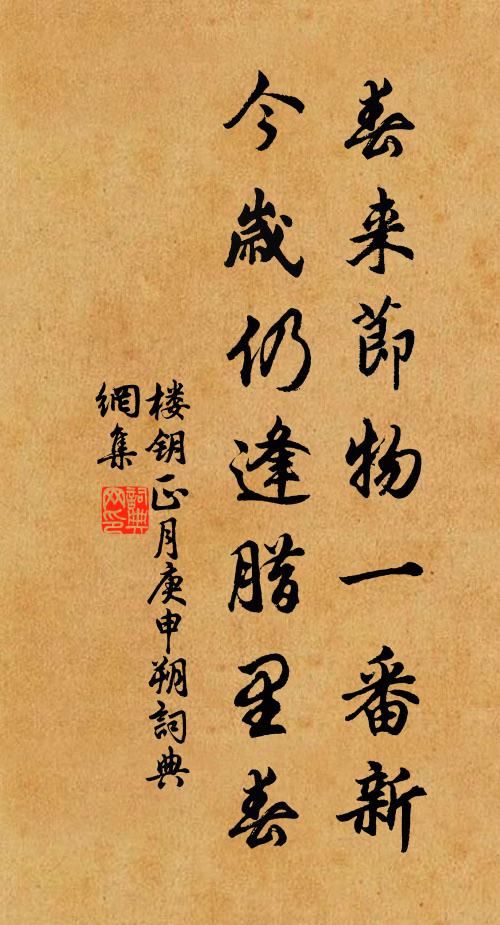 春来節物一番新
今歲仍逢腊里春
楼钥正月庚申朔詞典
網集
詞典網印